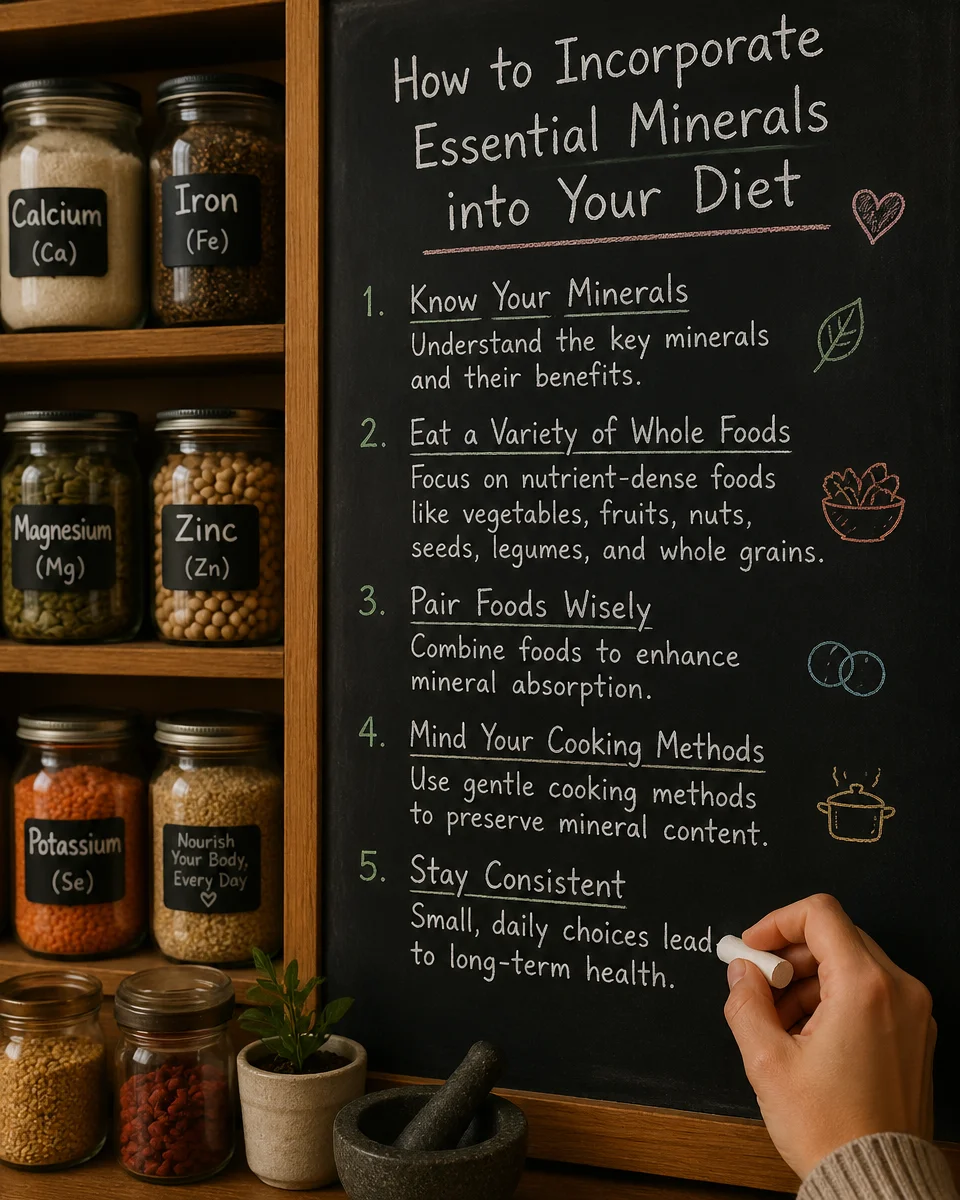 Calcium
(Ca)
Iron
(Fe)
Magnesium
(Mg)
Zinc
(Zn)
Potassium
(Se)
Nourish
Your Body,
Every Day
How to Incorporate
Essential Minerals
into Your Diet
1. Know Your Minerals
Understand the key minerals
and their benefits.
2. Eat a Variety of Whole Foods
Focus on nutrient-dense foods
like vegetables, fruits, nuts,
seeds, legumes, and whole grains.
3. Pair Foods Wisely
Combine foods to enhance
mineral absorption.
4. Mind Your Cooking Methods
Use gentle cooking methods
to preserve mineral content.
5. Stay Consistent
Small, daily choices lead
to long-term health.